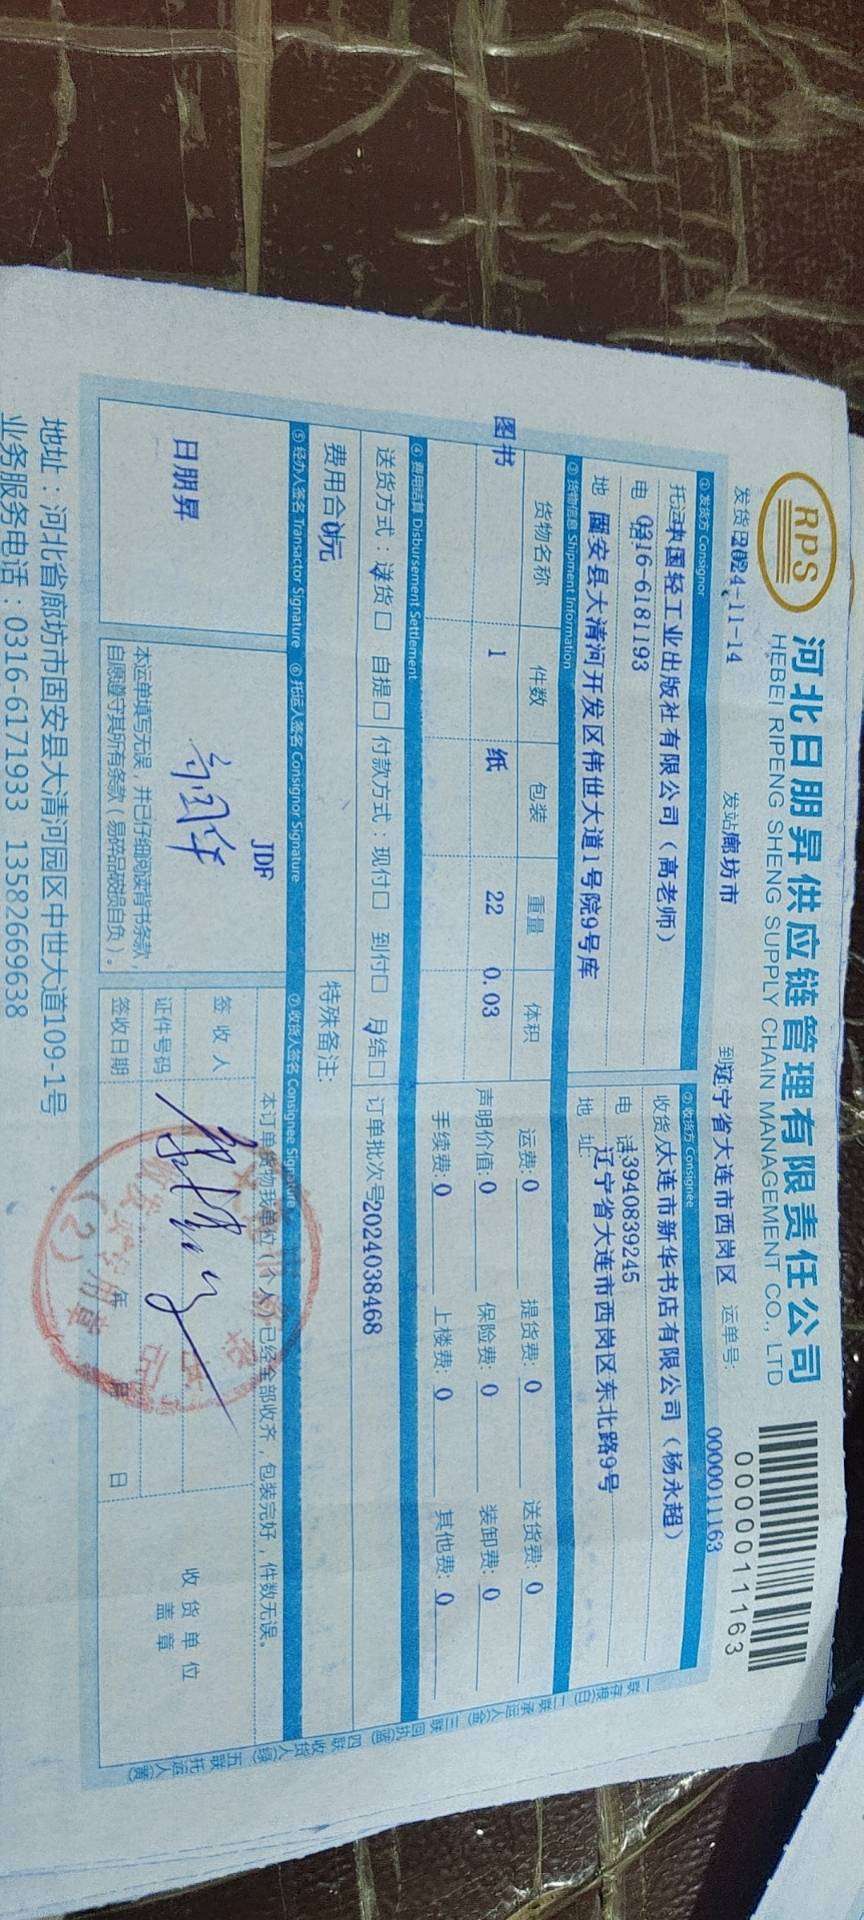 RPS
河北日朋昇供应链管理有限责任公司
HEBEI RIPENG SHENG SUPPLY CHAIN MANAGEMENT CO., LTD
0000011163
发货日期 2024-11-14 发站 廊坊市 到站 辽宁省大连市西岗区 运单号: 0000011163
① 发货方 Consignor ② 收货方 Consignee
托运人 中国轻工业出版社有限公司（高老师） 收货人 大连市新华书店有限公司（杨永超）
电话 0316-6181193 电话 13940839245
地址 固安县大清河开发区伟世大道1号院9号库 地址 辽宁省大连市西岗区东北路9号
③ 货物信息 Shipment Information
货物名称 件数 包装 重量 体积 运费: 0 提货费: 0 送货费: 0
图书 1 纸 22 0.03 声明价值: 0 保险费: 0 装卸费: 0
手续费: 0 上楼费: 0 其他费: 0
④ 费用结算 Disbursement Settlement
送货方式：送货☑ 自提□ 付款方式：现付□ 到付□ 月结☑ 订单批次号 2024038468
费用合计 0元 特殊备注:
⑤ 经办人签名 Transactor Signature ⑥ 托运人签名 Consignor Signature ⑦ 收货人签名 Consignee Signature
日朋昇
JDF
本订单货物我单位（个人）已经全部收齐，包装完好，件数无误。
签收人
证件号码
签收日期 年 月 日
收货单位
盖章
(2)
本运单填写无误，并已仔细阅读背书条款，
自愿遵守其所有条款（易碎品破损自负）。
地址：河北省廊坊市固安县大清河园区中世大道109-1号
业务服务电话：0316-6171933 13582669638
一联存根(白) 二联承运人(金) 三联回执(蓝) 四联收货人(绿) 五联托运人(黄)